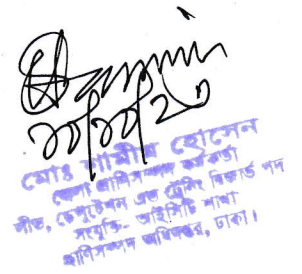 মোঃ শামীম হোসেন
জেলা প্রাণিসম্পদ কর্মকর্তা
লীভ, ডেপুটেশন এন্ড ট্রেনিং রিজার্ভ পদ
সংযুক্তি- আইসিটি শাখা
প্রাণিসম্পদ অধিদপ্তর, ঢাকা।